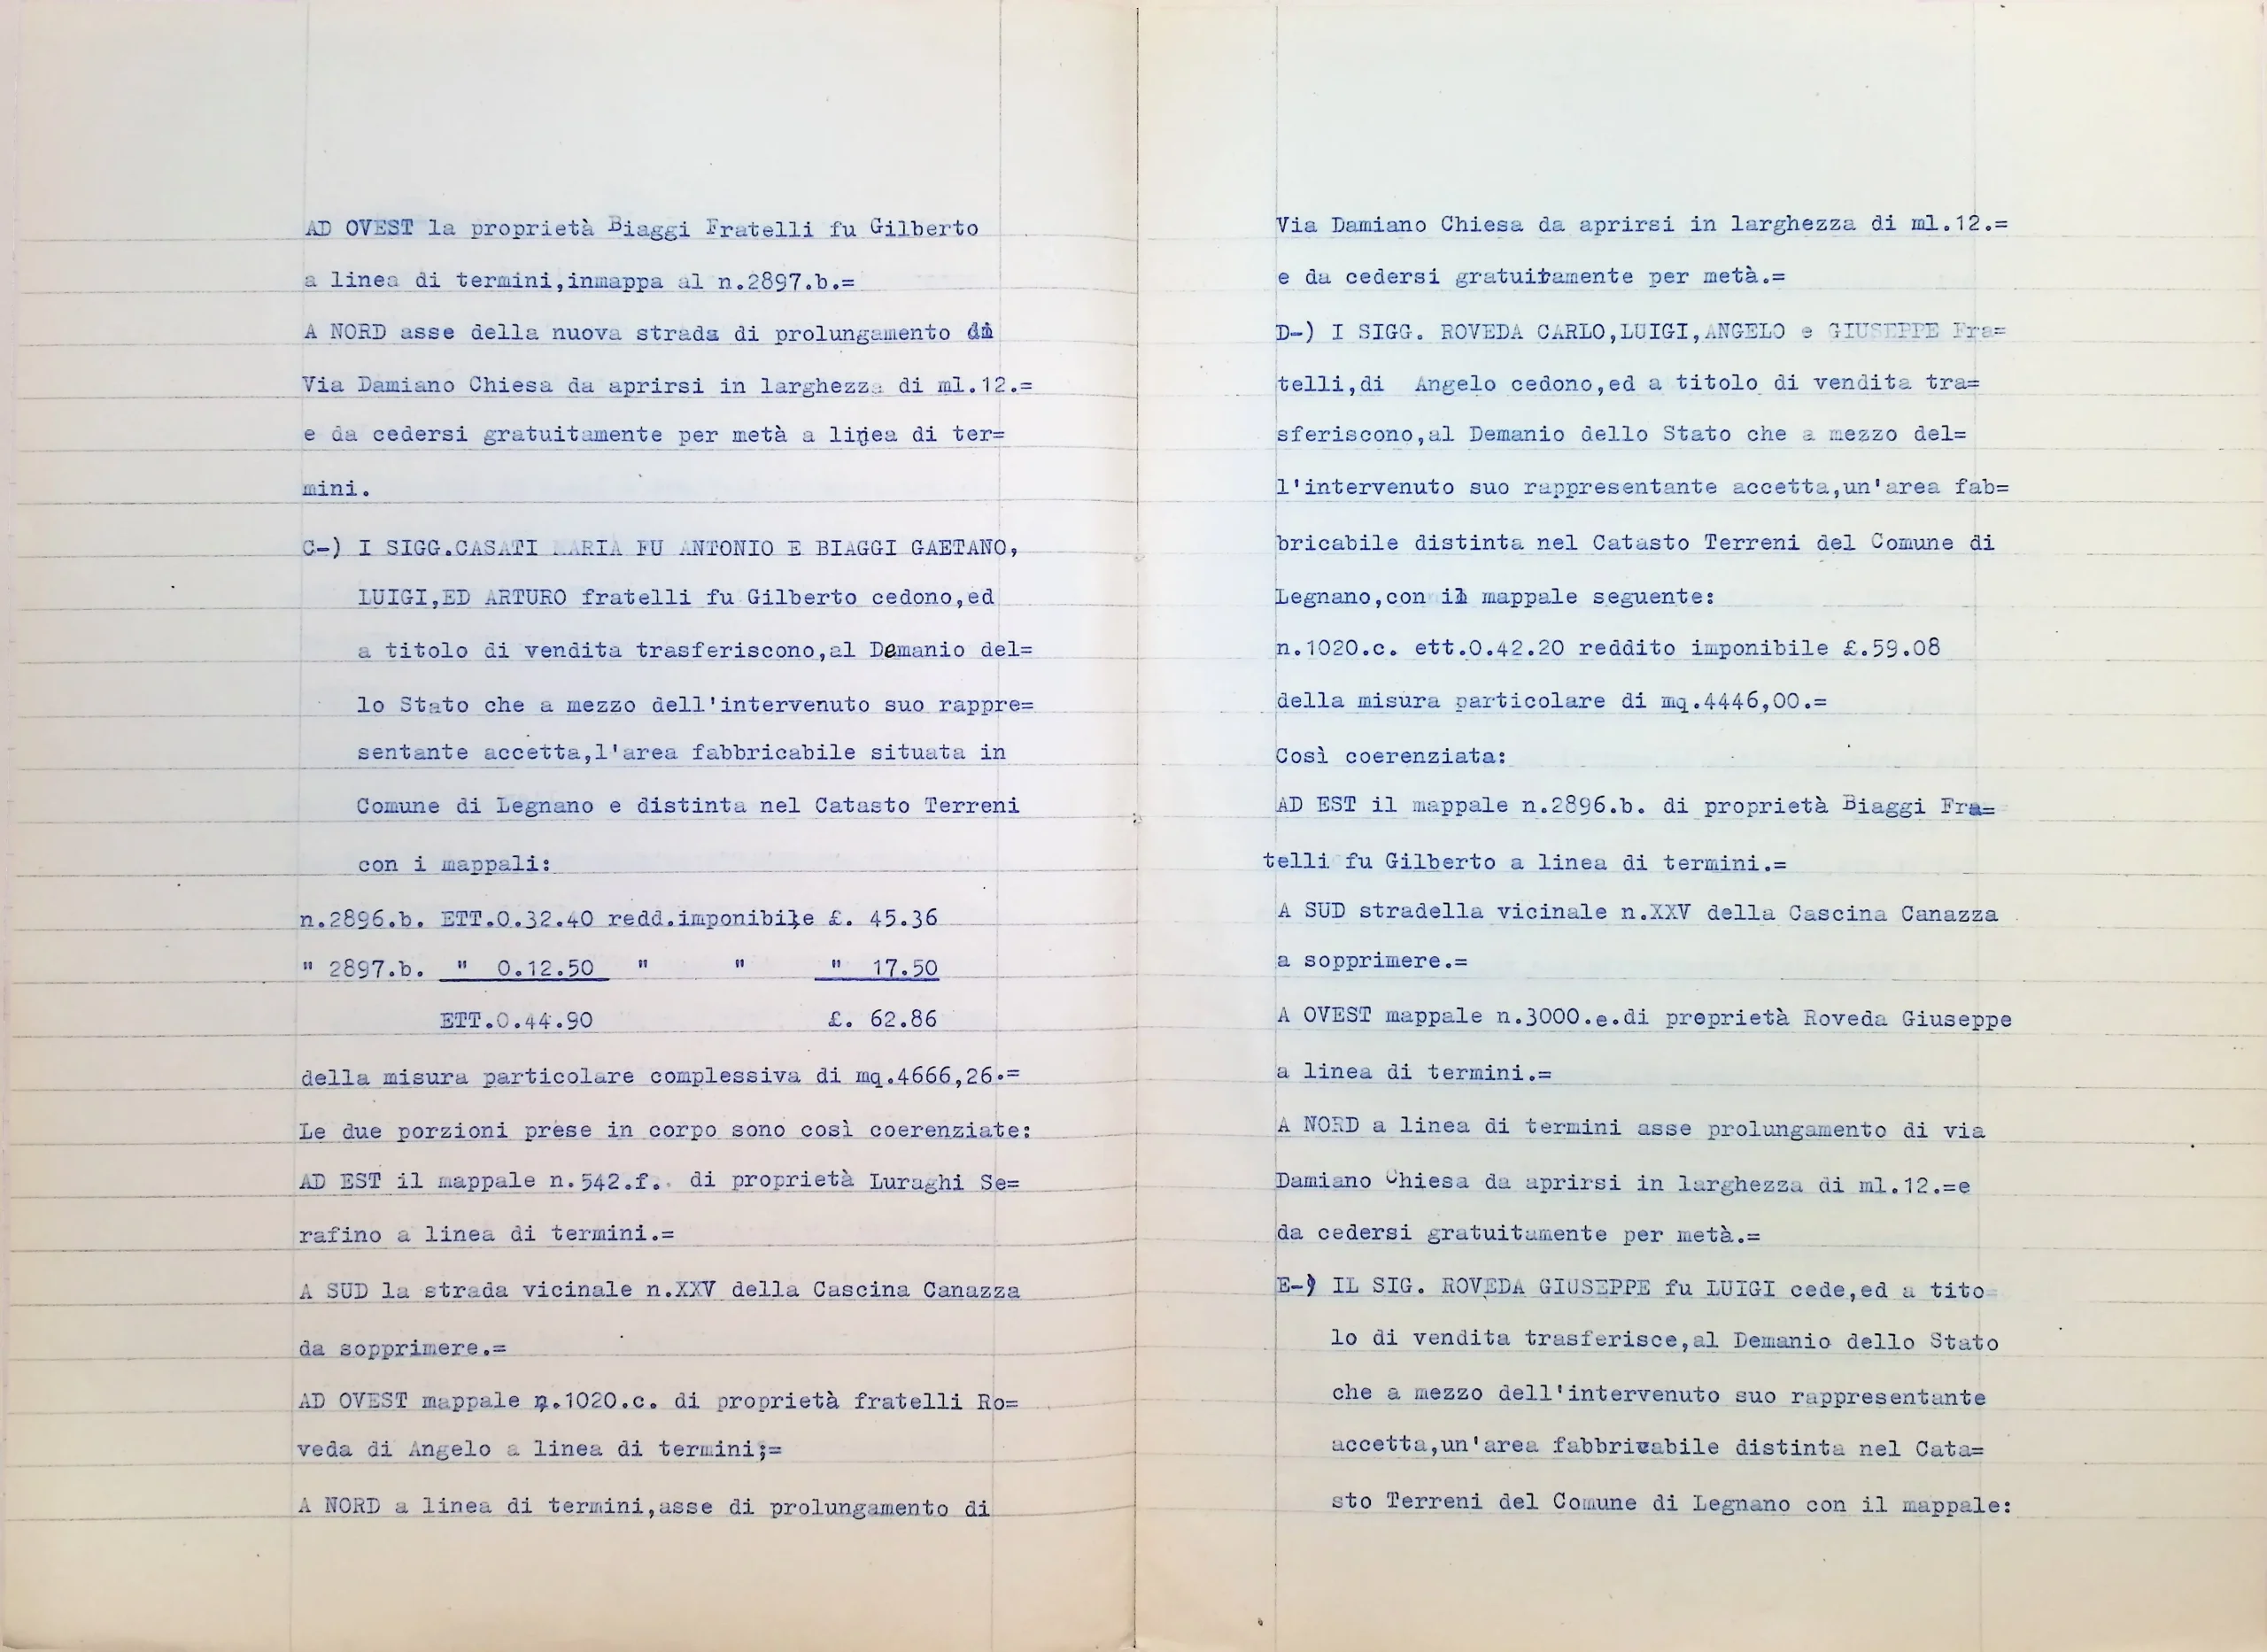 AD OVEST la proprietà Biaggi Fratelli fu Gilberto
a linea di termini,inmappa al n.2897.b.=
A NORD asse della nuova strada di prolungamento di
Via Damiano Chiesa da aprirsi in larghezza di ml.12.=
e da cedersi gratuitamente per metà a linea di ter=
mini.
C-) I SIGG.CASATI MARIA FU ANTONIO E BIAGGI GAETANO,
LUIGI,ED ARTURO fratelli fu Gilberto cedono,ed
a titolo di vendita trasferiscono,al Demanio del=
lo Stato che a mezzo dell'intervenuto suo rappre=
sentante accetta,l'area fabbricabile situata in
Comune di Legnano e distinta nel Catasto Terreni
con i mappali:
n.2896.b. ETT.0.32.40 redd.imponibile £. 45.36
" 2897.b. " 0.12.50 " " " 17.50
ETT.0.44.90 £. 62.86
della misura particolare complessiva di mq.4666,26.=
Le due porzioni prese in corpo sono così coerenziate:
AD EST il mappale n.542.f. di proprietà Luraghi Se=
rafino a linea di termini.=
A SUD la strada vicinale n.XXV della Cascina Canazza
da sopprimere.=
AD OVEST mappale n.1020.c. di proprietà fratelli Ro=
veda di Angelo a linea di termini;=
A NORD a linea di termini,asse di prolungamento di
Via Damiano Chiesa da aprirsi in larghezza di ml.12.=
e da cedersi gratuitamente per metà.=
D-) I SIGG. ROVEDA CARLO,LUIGI,ANGELO e GIUSEPPE Fra=
telli,di Angelo cedono,ed a titolo di vendita tra=
sferiscono,al Demanio dello Stato che a mezzo del=
l'intervenuto suo rappresentante accetta,un'area fab=
bricabile distinta nel Catasto Terreni del Comune di
Legnano,con il mappale seguente:
n.1020.c. ett.0.42.20 reddito imponibile £.59.08
della misura particolare di mq.4446,00.=
Così coerenziata:
AD EST il mappale n.2896.b. di proprietà Biaggi Fra=
telli fu Gilberto a linea di termini.=
A SUD stradella vicinale n.XXV della Cascina Canazza
a sopprimere.=
A OVEST mappale n.3000.e.di proprietà Roveda Giuseppe
a linea di termini.=
A NORD a linea di termini asse prolungamento di via
Damiano Chiesa da aprirsi in larghezza di ml.12.=e
da cedersi gratuitamente per metà.=
E-) IL SIG. ROVEDA GIUSEPPE fu LUIGI cede,ed a tito=
lo di vendita trasferisce,al Demanio dello Stato
che a mezzo dell'intervenuto suo rappresentante
accetta,un'area fabbricabile distinta nel Cata=
sto Terreni del Comune di Legnano con il mappale: